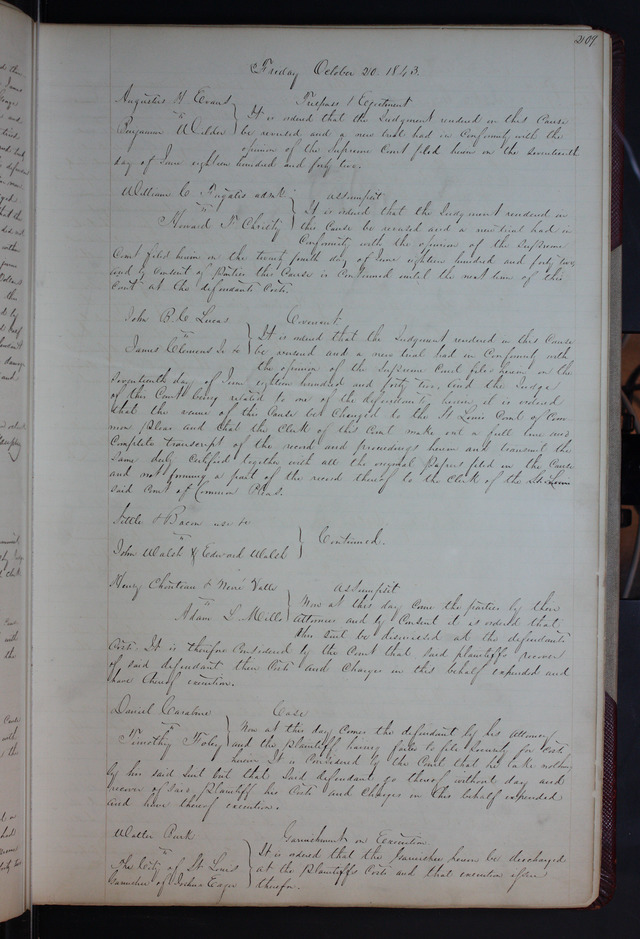 209.
Friday October 20. 1843.
Augustus H Evans Trespass / Ejectment
vs It is ordered that the Judgment rendered in this Cause
Benjamin Wilder be reversed and a new trial had in Conformity with the
opinion of the Supreme Court filed herein on the seventeenth
day of June eighteen hundred and forty two.
William C admr assumpsit
vs It is ordered that the Judgment rendered in
Howard F. Christy this Cause be reversed and a new trial had in
Conformity with the opinion of the Supreme
Court filed herein on the twenty fourth day of June eighteen hundred and forty two
and by Consent of Parties this Cause is Continued until the next term of this
Court at the defendants Costs.
John B. C Lucas Covenant
vs It is ordered that the Judgment rendered in this Cause
James Clemens Jr &c be reversed and a new trial had in Conformity with
the opinion of the Supreme Court filed herein on the
Seventeenth day of June eighteen hundred and forty two, And the Judge
of this Court being related to one of the defendants herein, it is ordered
that the venue of this Cause be Changed to the St Louis Court of Com
mon Pleas and that the Clerk of this Court make out a full true and
Complete transcript of the record and proceedings herein and transmit the
Same duly Certified together with all the original Papers filed in the Cause
and not forming a part of the record thereof to the Clerk of the St Louis
said Court of Common Pleas.
Little & Bacon use &c
vs Continued.
John Walsh & Edward Walsh
Henry Chouteau & Valle assumpsit
vs Now at this day Come the parties by their
Adam L. Mills attornies and by Consent it is ordered that
this suit be dismissed at the defendants
Costs. It is therefore Considered by the Court that said plaintiffs recover
of said defendant their Costs and Charges in this behalf expended and
have thereof execution.
Daniel Case
vs Now at this day Comes the defendant by his attorney
Timothy Foley and the plaintiff having failed to file security for Costs
herein It is Considered by the Court that he take nothing
by his said suit but that said defendant go thereof without day and
recover of said plaintiff his Costs and Charges in this behalf expended
and have thereof execution.
Walter Garnishment on Execution
vs It is ordered that the garnishee herein be discharged
The City of St Louis at the plaintiffs Costs and that execution issue
Garnishee of Joshua therefor.